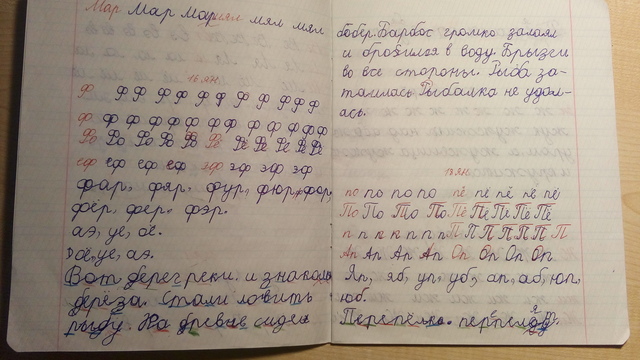 Мар Мар Мариял мял мял
16 ян.
ф ф ф ф ф ф ф ф ф ф ф ф
ф ф ф ф ф ф ф ф ф ф ф ф
Фо Фо Фо Фо Фо Фо Фе Фе Фе Фе Фе
еф еф еф еф эф эф эф эф
фар, фяр, фур, фюр, фор,
фёр, фер, фэр.
аэ, уе, оё.
оё, уе, аэ.
Вот берег реки. и знакома
берёза. Стали ловить
рыбу. На бревне сидел
бобёр. Барбос громко залаял
и бросился в воду. Брызги
во все стороны. Рыба за-
таилась. Рыбалка не удал-
ась.
17 ян.
по по по по пё пё пё пё пё
По По По По Пё Пё Пё Пё Пё
п п п п п п п П П П П П П П
Ап Ап Ап Ап Оп Оп Оп Оп.
Яп, яб, уп, уб, ап, аб, юп,
юб.
Перепёлка. перпел